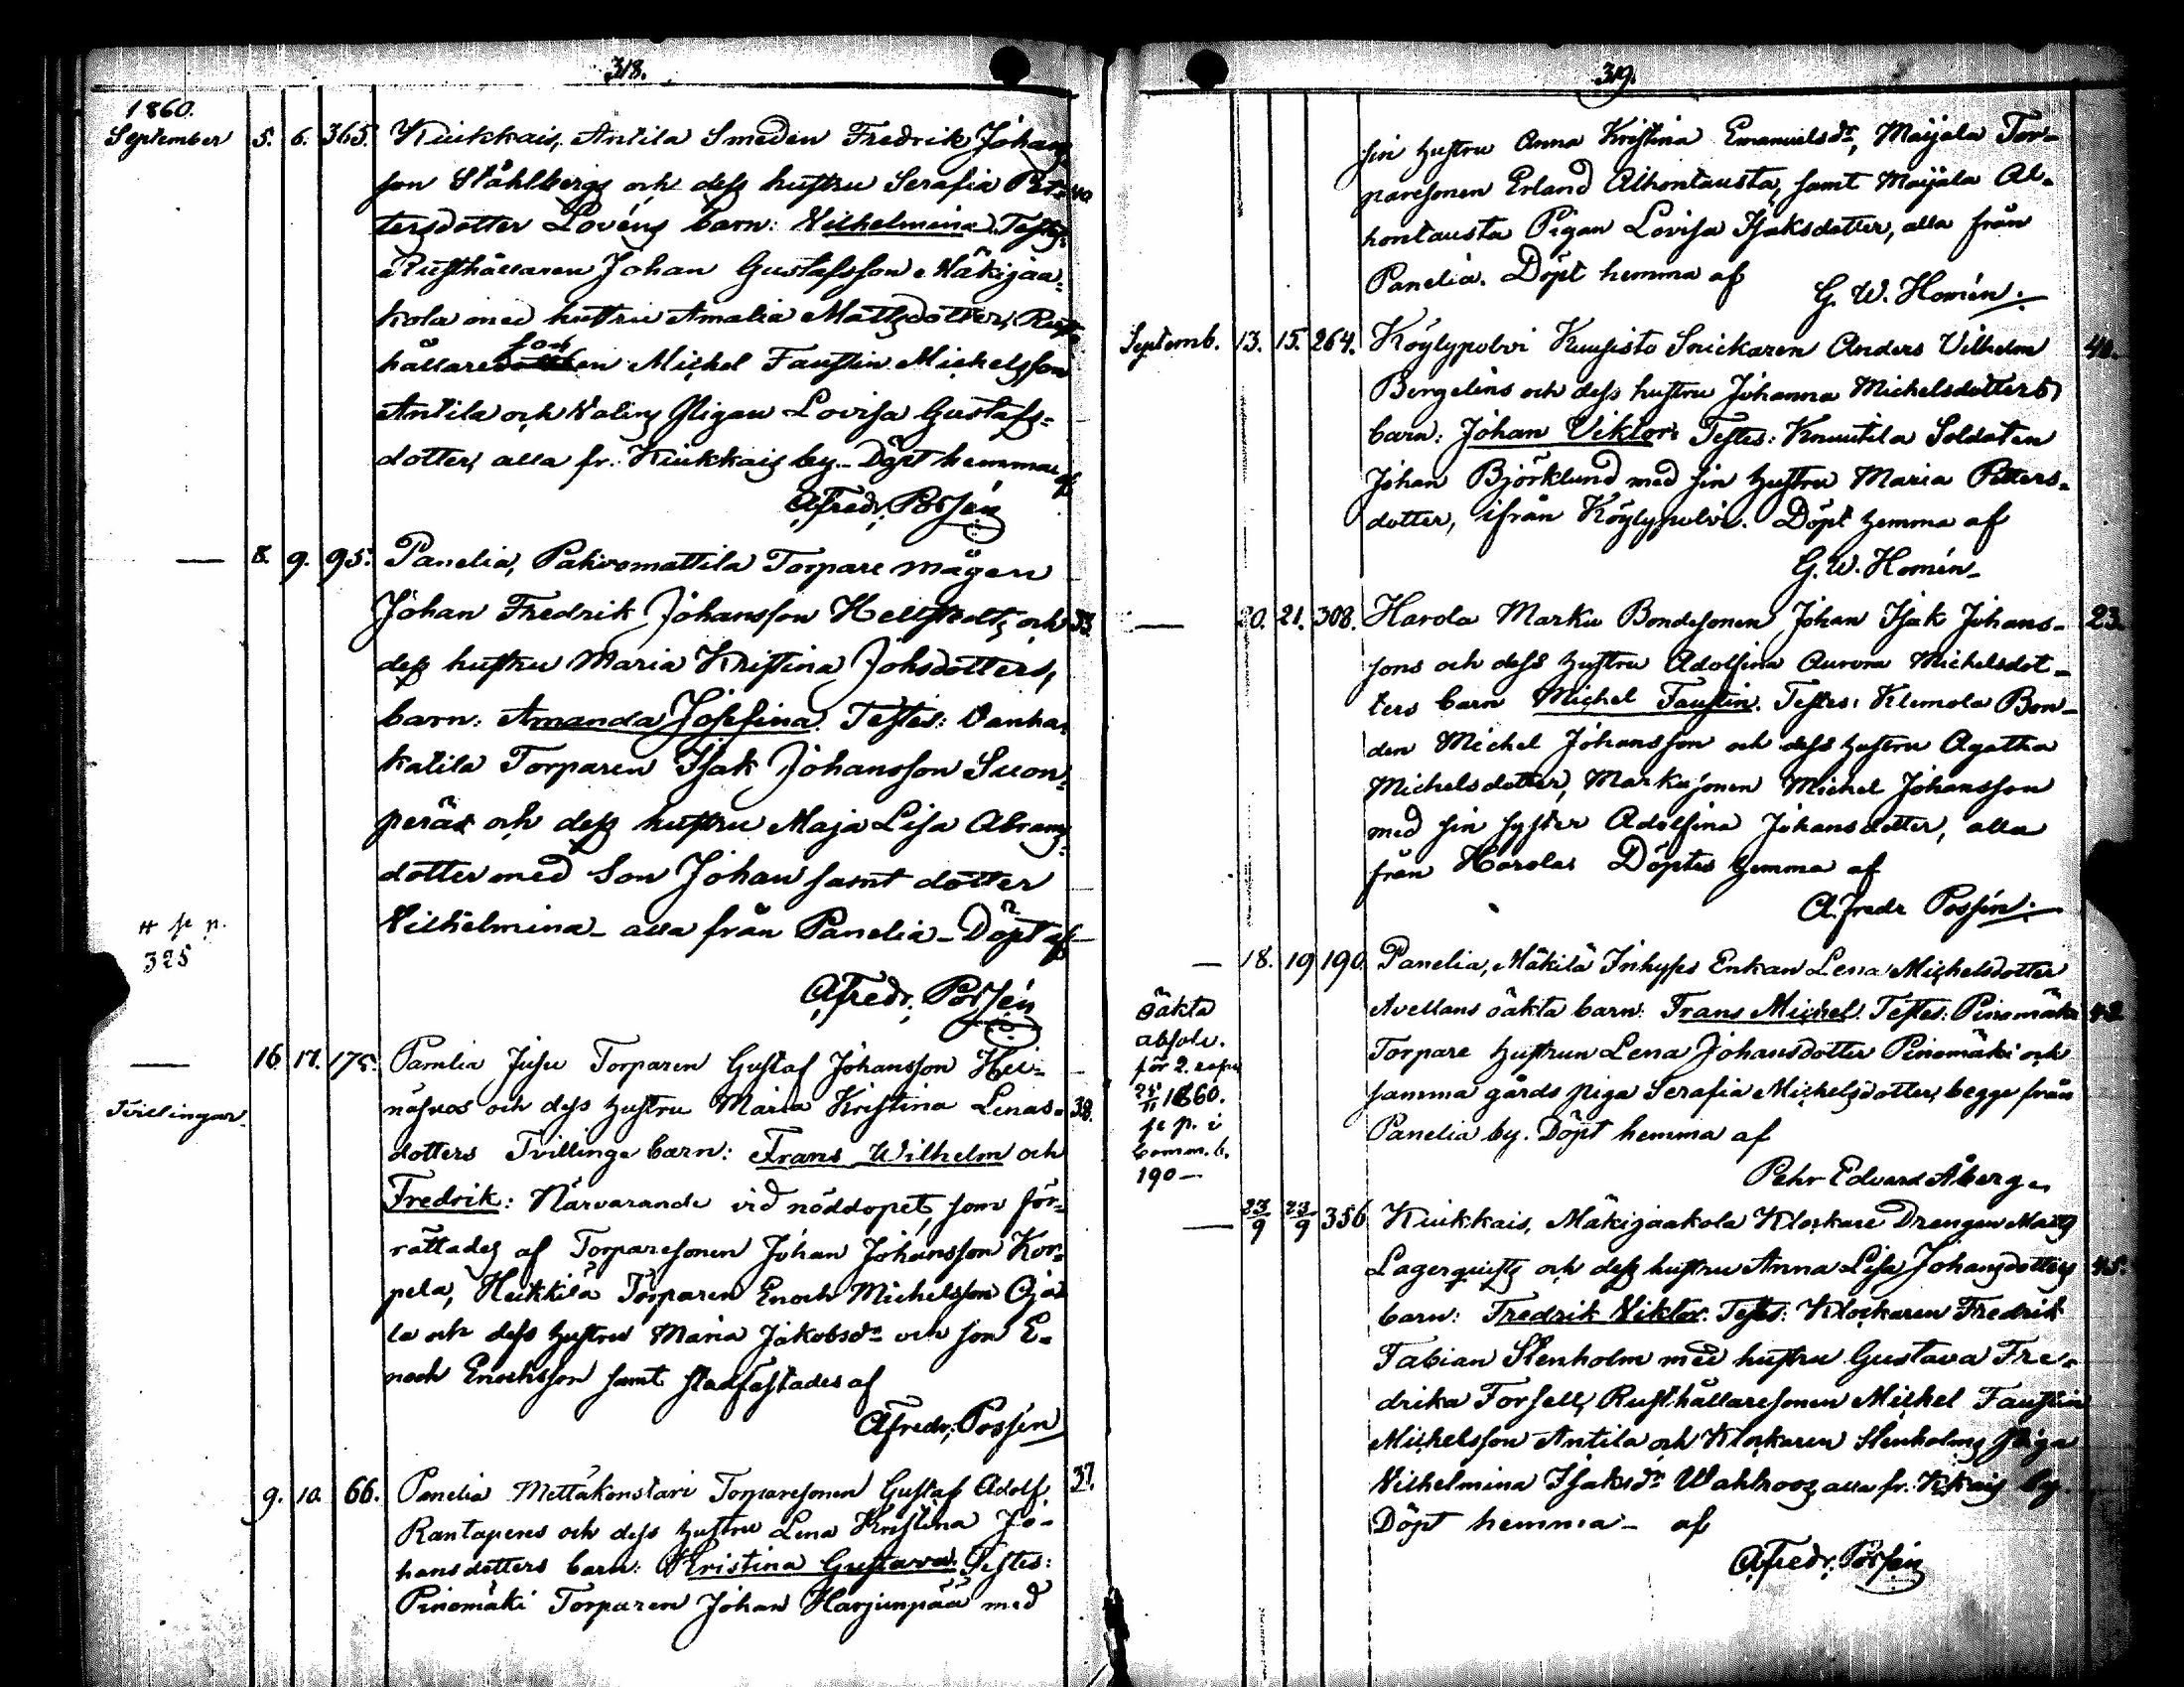 318.
1860.
September 5. 6. 365. Kiukkais, Antila Smeden Fredrik Johans-
son Ståhlbergs och dess hustru Serafia Pet- 40.
tersdotter Lovéns barn: Wilhelmina. Testes:
Rusthållaren Johan Gustafsson Mäkijaa-
kola med hustru Amalia Mattsdotter, Rust-
hållaresonen Michel Faustin Michelsson
Antila och Pigan Lovisa Gustafs-
dotter, alla fr. Kiukkais by. Döpt hemma af
A Fredr. Possén
— 8. 9. 95. Panelia, Pakromattila Torpare mågen
Johan Fredrik Johansson Hellstedts och 33.
dess hustru Maria Kristina Johsdotters,
barn: Amanda Josefina. Testes: Vanha-
katila Torparen Isak Johansson Suon-
perät och dess hustru Maja Lisa Abrams-
dotter med Son Johan samt dotter
Wilhelmina — alla från Panelia — Döpt af
# se p.
325
A Fredr. Possén
— 16. 17. 175. Panelia Jusu Torparen Gustaf Johansson Hei-
näsuos och dess hustru Maria Kristina Lenas- 38.
Tvillingar.
dotters Tvillinge barn: Frans Wilhelm och
Fredrik: Närvarande vid nöddopet, som för-
rättades af Torparesonen Johan Johansson Kor-
pela, Heikkilä Torparen Enoch Michelsson Oja-
la och dess hustru Maria Jakobsdr och son E-
noch Enochsson samt stadfästades af
A Fredr. Possén
9. 10. 66. Panelia Mettäkonstari Torparesonen Gustaf Adolf 37.
Rantaperes och dess hustru Lena Kristina Jo-
hansdotters barn: Kristina Gustava. Testes:
Pinomäki Torparen Johan Harjunpää med
319.
sin hustru Anna Kristina Emanuelsdr, Maijala Tor-
paresonen Erland Alhontausta, samt Maijala Al-
hontausta Pigan Lovisa Isaksdotter, alla från
Panelia. Döpt hemma af
G. W. Homén.
Septemb. 13. 15. 264. Köylypolvi Kuusisto Snickaren Anders Vilhelm 40.
Bergelins och dess hustru Johanna Michelsdotters
barn: Johan Viktor. Testes: Knuutila Soldaten
Johan Björklund med sin hustru Maria Petters-
dotter, ifrån Köylypolvi. Döpt hemma af
G. W. Homén
— 20. 21. 308. Harola Marku Bondesonen Johan Isak Johans- 23.
sons och dess hustru Adolfina Aurora Michelsdot-
ters barn Michel Faustin. Testes: Klemola Bon-
den Michel Johansson och dess hustru Agatha
Michelsdotter, Markusonen Michel Johansson
med sin syster Adolfina Johansdotter, alla
från Harola. Döptes hemma af
A. Fredr Possén.
— 18. 19 190. Panelia, Mäkilä Inhyses Enkan Lena Michelsdotter
Avellans oäkta barn: Frans Michel. Testes: Pinomäki 42
Torpare hustrun Lena Johansdotter Pinomäki och
samma gårds piga Serafia Michelsdotter, begge från
Panelia by. Döpt hemma af
Pehr Edvard Åberg.
Oäkta
absolv.
för 2. resan
25/11 1860.
se p. i
Comm. b.
190 —
— 23/9 23/9 356 Kiukkais, Mäkijaakola Klockare Drengen Matts
Lagerquists och dess hustru Anna Lisa Johansdotters 45.
barn: Fredrik Viktor. Testes: Klockaren Fredrik
Fabian Stenholm med hustru Gustava Fre-
drika Forsell, Rusthållaresonen Michel Faustin
Michelsson Antila och Klockaren Stenholms Piga
Vilhelmina Isaksdr Wahlroos, alla fr. Kkais by.
Döpt hemma — af
A Fredr. Possén